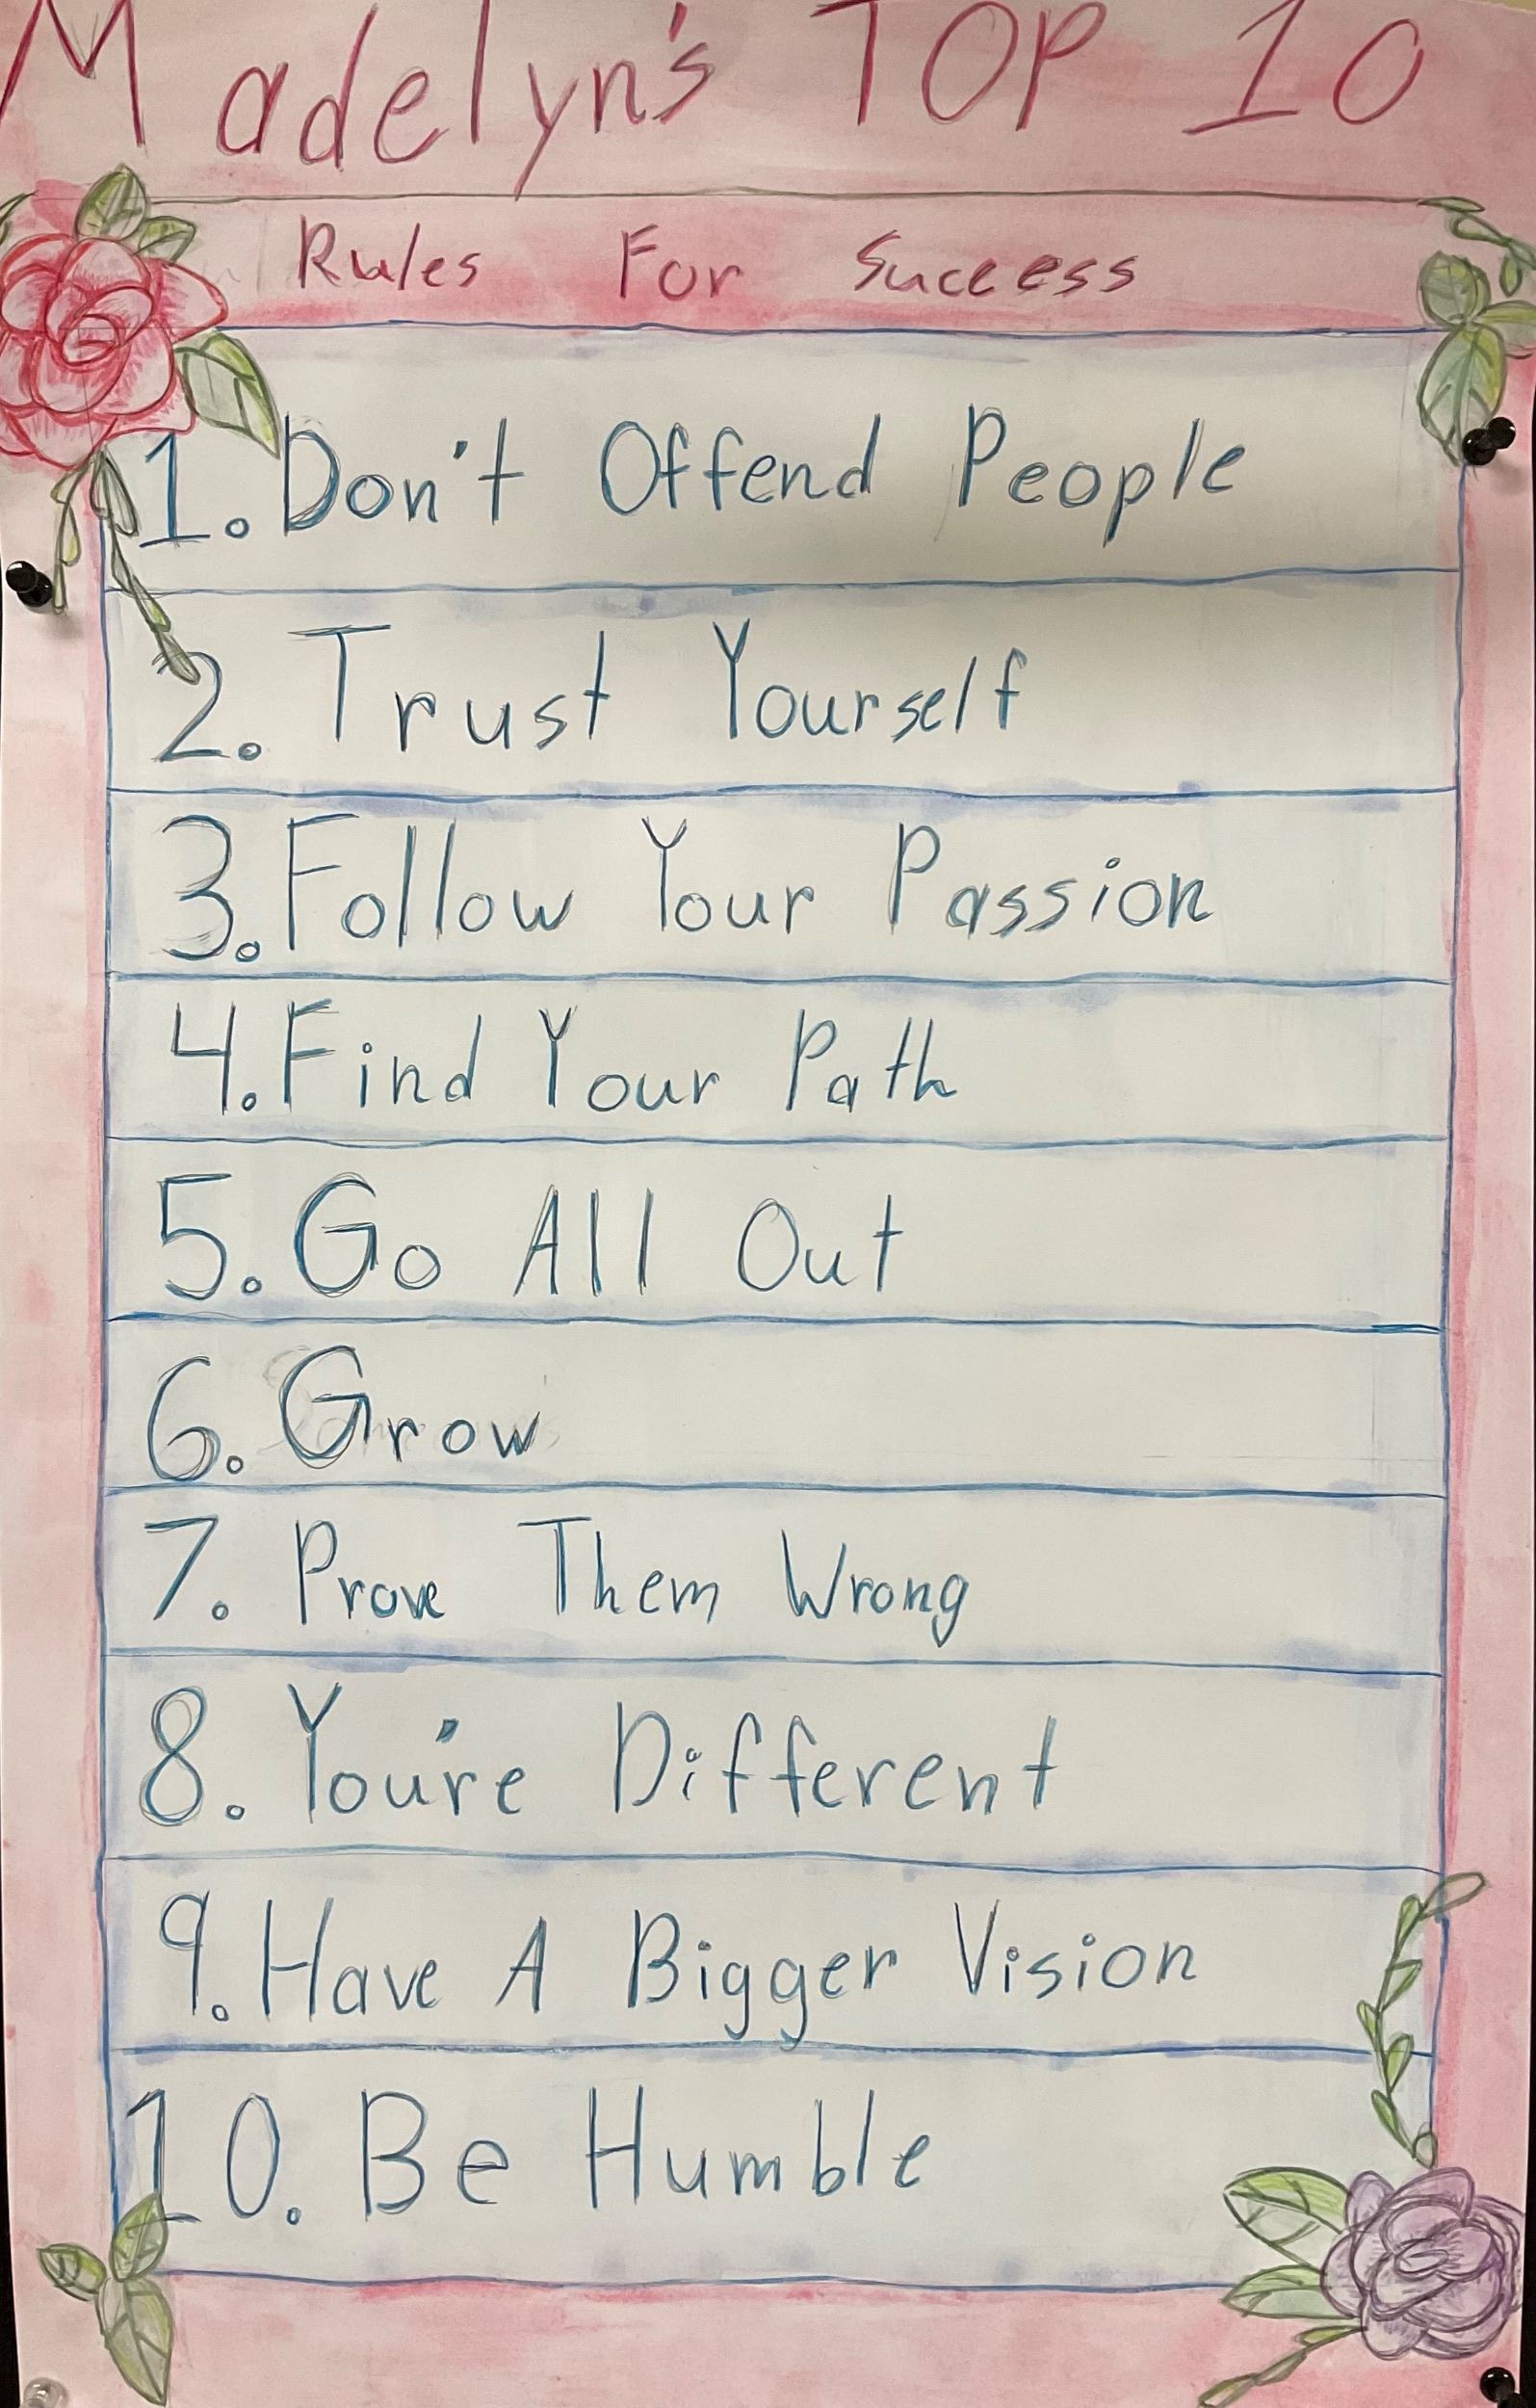 Madelyn's TOP 10
Rules For Success
1. Don't Offend People
2. Trust Yourself
3. Follow Your Passion
4. Find Your Path
5. Go All Out
6. Grow
7. Prove Them Wrong
8. You're Different
9. Have A Bigger Vision
10. Be Humble